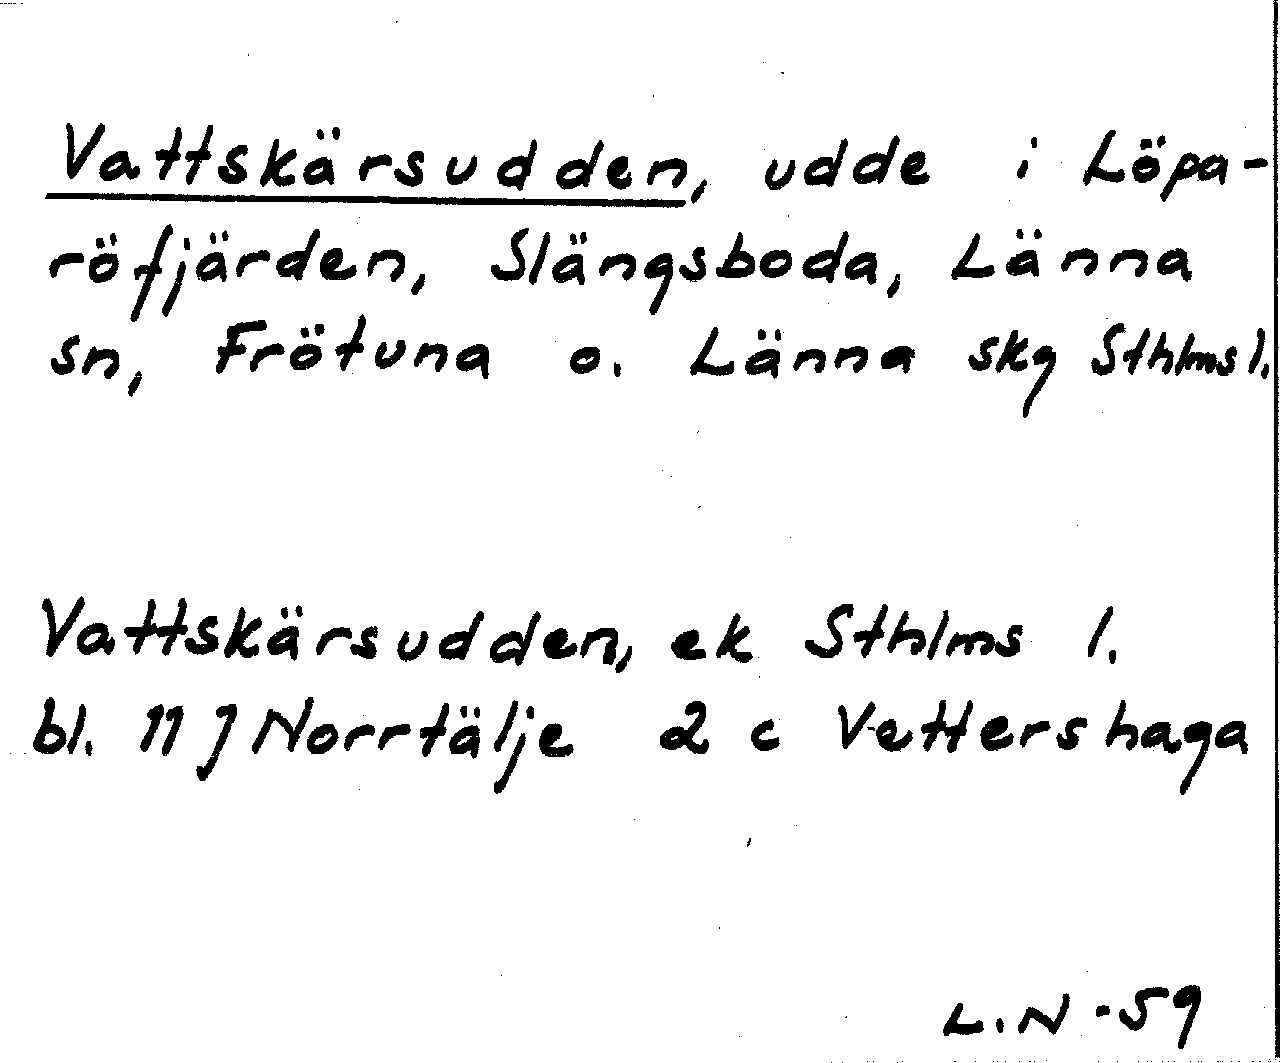 Vattskärsudden, udde i Löpa-
röfjärden, Slängsboda, Länna
sn, Frötuna o. Länna skg Sthlms l.
Vattskärsudden, ek Sthlms l.
bl. 11 J Norrtälje 2 c Vettershaga
L.N -59